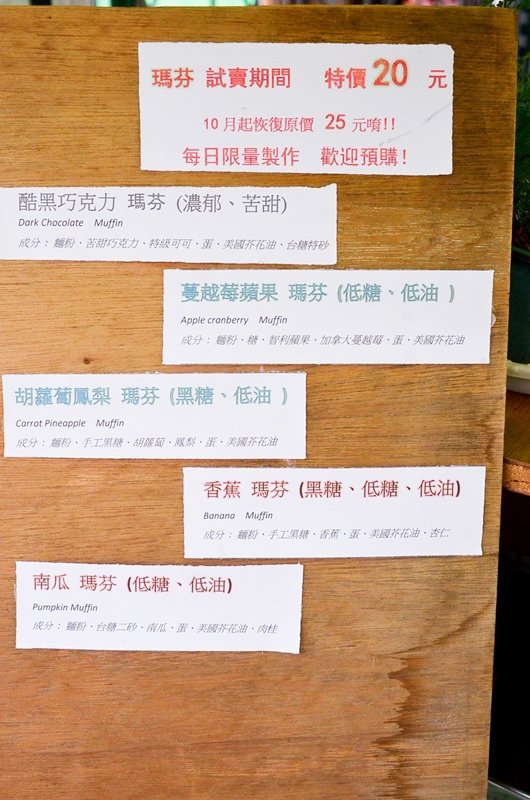 瑪芬 試賣期間 特價 20 元
10 月起恢復原價 25 元唷!!
每日限量製作 歡迎預購!
酷黑巧克力 瑪芬 (濃郁、苦甜)
Dark Chocolate Muffin
成分： 麵粉、苦甜巧克力、特級可可、蛋、美國芥花油、台糖特砂
蔓越莓蘋果 瑪芬 (低糖、低油 )
Apple cranberry Muffin
成分： 麵粉、糖、智利蘋果、加拿大蔓越莓、蛋、美國芥花油
胡蘿蔔鳳梨 瑪芬 (黑糖、低油 )
Carrot Pineapple Muffin
成分： 麵粉、手工黑糖、胡蘿蔔、鳳梨、蛋、美國芥花油
香蕉 瑪芬 (黑糖、低糖、低油)
Banana Muffin
成分： 麵粉、手工黑糖、香蕉、蛋、美國芥花油、杏仁
南瓜 瑪芬 (低糖、低油)
Pumpkin Muffin
成分： 麵粉、台糖二砂、南瓜、蛋、美國芥花油、肉桂